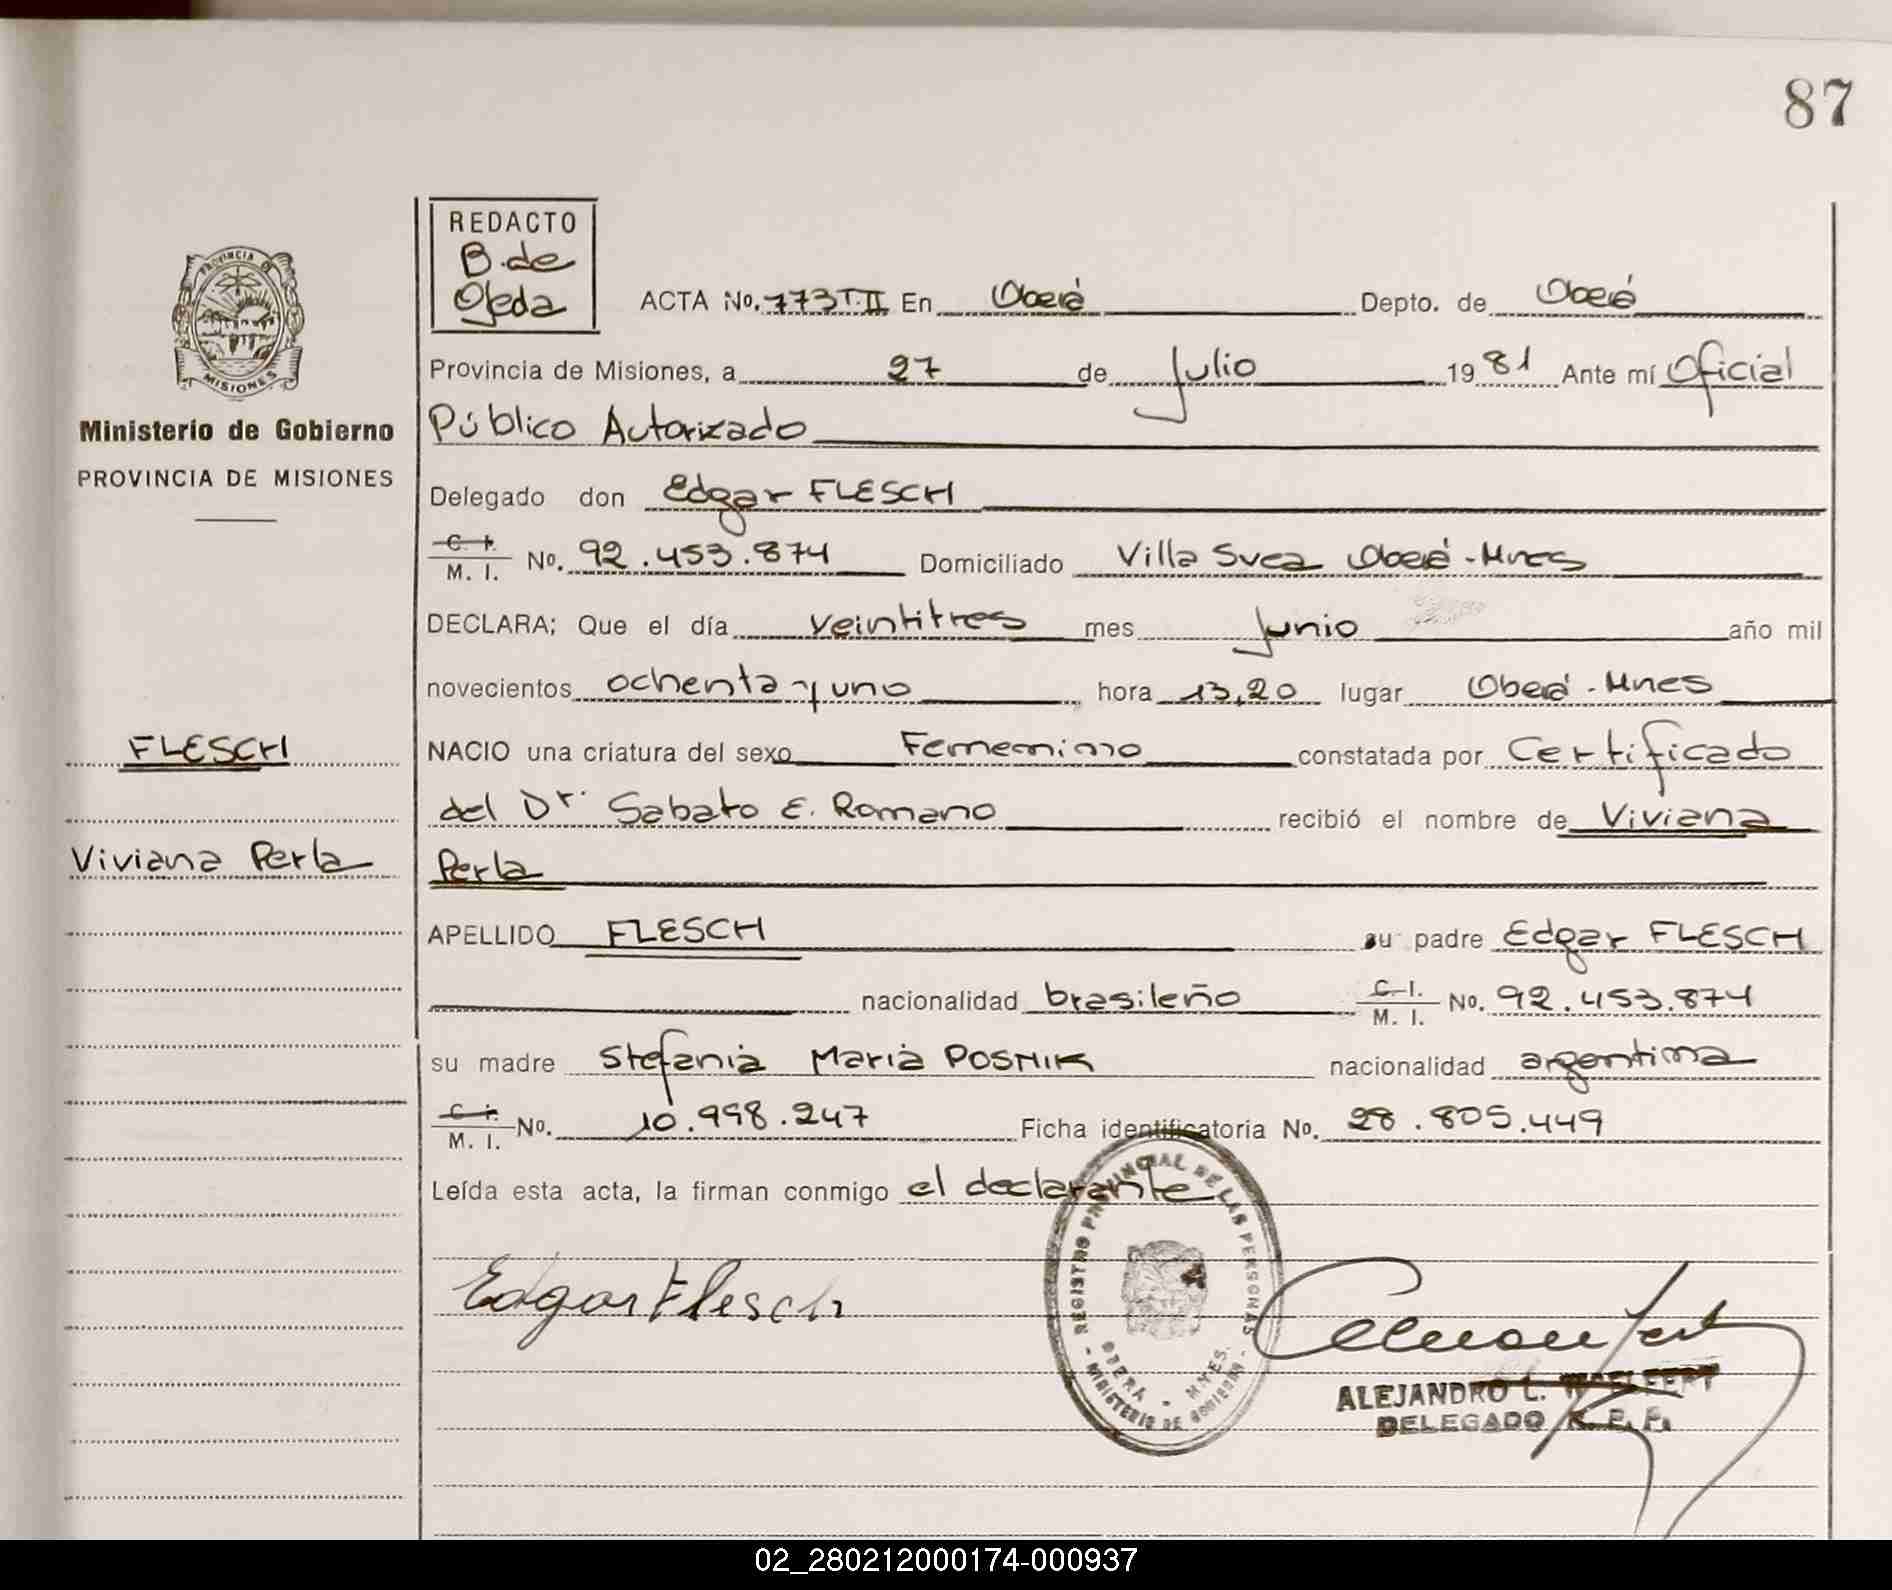 87
REDACTO
B. de
Ojeda
PROVINCIA DE
MISIONES
Ministerio de Gobierno
PROVINCIA DE MISIONES
ACTA No. 773 T. II En Oberá Depto. de Oberá
Provincia de Misiones, a 27 de Julio 1981 Ante mí Oficial
Público Autorizado
Delegado don Edgar FLESCH
C. I.
M. I. No. 92.453.874 Domiciliado Villa Svea Oberá - Mnes
DECLARA; Que el día veintitres mes Junio año mil
novecientos ochenta y uno hora 13,20 lugar Oberá - Mnes
FLESCH
NACIO una criatura del sexo Femenino constatada por Certificado
del Dr. Sabato E. Romano recibió el nombre de Viviana
Viviana Perla
Perla
APELLIDO FLESCH su padre Edgar FLESCH
nacionalidad brasileño C. I. M. I. No. 92.453.874
su madre Stefania Maria POSNIK nacionalidad argentina
C. I.
M. I. No. 10.998.247 Ficha identificatoria No. 28.805.449
Leída esta acta, la firman conmigo el declarante
Edgar Flesch
REGISTRO PROVINCIAL DE LAS PERSONAS
OBERA - MNES.
- MINISTERIO DE GOBIERNO -
ALEJANDRO L.
DELEGADO R. P. P.
02_280212000174-000937